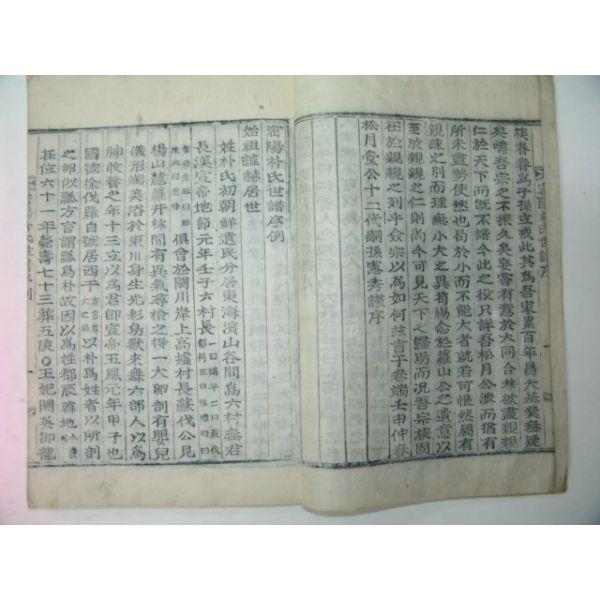 族眷眷爲子孫立戒此其爲吾家累百年昌大基業無疑
矣噫吾宗之不振久矣妾嘗有意於大同合族欲盡親親
仁於天下而旣不譜今此之役只詳吾松月公派而猶有
所未盡勢使然也局於小而不能大者就若可恨然厲有
親疎之別而理無小大之異苟賜念於麗山公之遺意以
至於親親之仁則尚今可見天下之歸
在於親親之列乎僉宗以爲如何玆言于卷端壬申仲春
松月堂公十二代嗣孫憲秀謹序
密陽朴氏世譜序例
始祖諱赫居世
姓朴氏初朝鮮遺民分居東海濱山谷間爲六村無君
長漢宣帝地節元年壬子六村長
俱會於閼川岸上高墟村長蘇伐公見
楊山麓蘿井林間有異氣尋檢之得一大卵剖有嬰兒
儀形端美浴於東川身生光彩鳥獸來舞六部人以爲
神收養之年十三立以爲君卽宣帝五鳳元年甲子也
國號徐伐羅自號居西干 以朴爲姓者以所剖
之卵似瓢方言謂瓢爲朴故因以爲姓都辰韓地
在位六十一年新壽七十三葬五陵○王妃閼英御龍